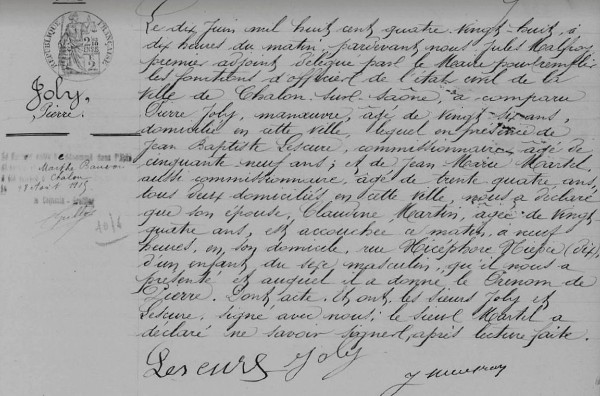 RÉPUBLIQUE FRANÇAISE
Joly,
Pierre.
Marthe
Chalon
Le dix Juin mil huit cent quatre vingt-huit, à
dix heures du matin, pardevant nous Jules
premier adjoint délégué par le Maire pour remplir
les fonctions d'officier de l'état civil de la
ville de Chalon-sur-Saône, a comparu
Pierre Joly, manœuvre, âgé de vingt six ans,
domicilié en cette ville, lequel en présence de
Jean Baptiste Lescure, commissionnaire, âgé de
cinquante neuf ans; et de Jean Marie Martel
aussi commissionnaire, âgé de trente quatre ans,
tous deux domiciliés en cette ville, nous a déclaré
que son épouse, Claudine Martin, âgée de vingt
quatre ans, est accouchée ce matin, à neuf
heures, en son domicile, rue Nicéphore Niepce (dix),
d'un enfant du sexe masculin, qu'il nous a
présenté et auquel il a donné le Prénom de
Pierre. Dont acte. Et ont, les sieurs Joly et
Lescure, signé avec nous; le sieur Martel a
déclaré ne savoir signer, après lecture faite.
Lescure Joly